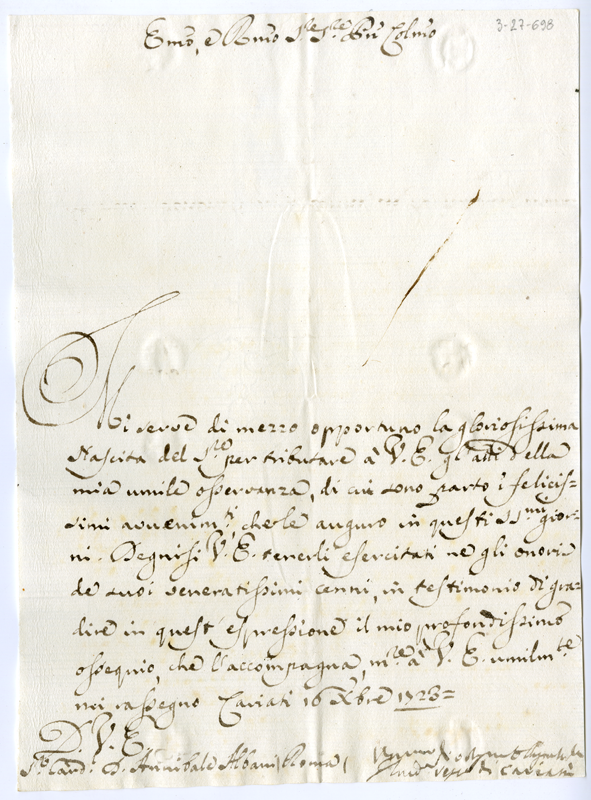 3-27-698
Emo, e Rmo Sre Sre Pne Colmo
Mi serve di mezzo opportuno la gloriosissima
Nascita del Sre per tributare à V. E. gl'atti della
mia umile osservanza, di cui sono parto i felicis=
simi avvenimti, che le auguro in questi SSmi gior=
ni. Degnisi V. E. tenerli esercitati ne gli onori
de suoi veneratissimi cenni, in testimonio di gra=
dire in quest'espressione il mio profondissimo
ossequio, che l'accompagna, mre à V. E. umilmte
mi rassegno Cariati 16 Xbre 1723=
D. V. E.
Sr Card. D. Annibale Albani (Roma (
Vesc. di Cariati